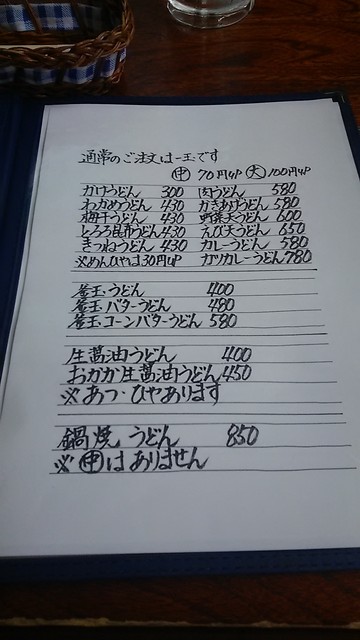 通常のご注文は一玉です
㊥ 70円UP 大 100円UP
かけうどん 300 肉うどん 580
わかめうどん 430 かきあげうどん 580
梅干うどん 430 野菜天うどん 600
とろろ昆布うどん 430 えび天うどん 650
きつねうどん 430 カレーうどん 580
※めんひやは30円UP カツカレーうどん 780
釜玉・うどん 400
釜玉・バターうどん 480
釜玉・コーンバターうどん 580
生醤油うどん 400
おかか生醤油うどん 450
※あつ・ひやあります
鍋焼うどん 850
※㊥はありません